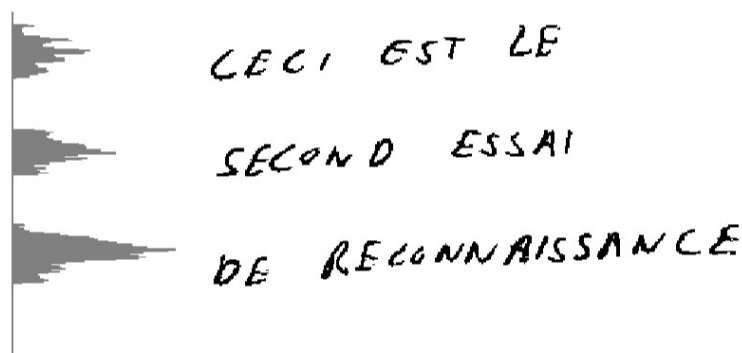 CECI EST LE
SECOND ESSAI
DE RECONNAISSANCE